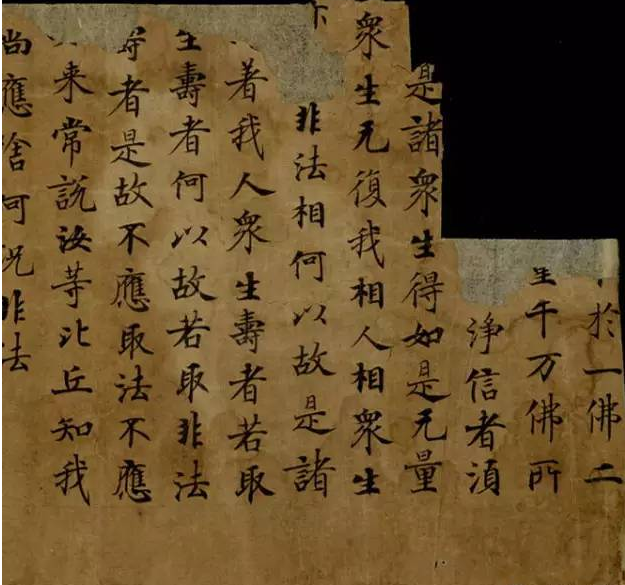 於一佛二
千万佛所
淨信者須
是諸衆生得如是无量
衆生无復我相人相衆生
非法相何以故是諸
著我人衆生壽者若取
生壽者何以故若取非法
壽者是故不應取法不應
来常説汝等比丘知我
尚應捨何况非法